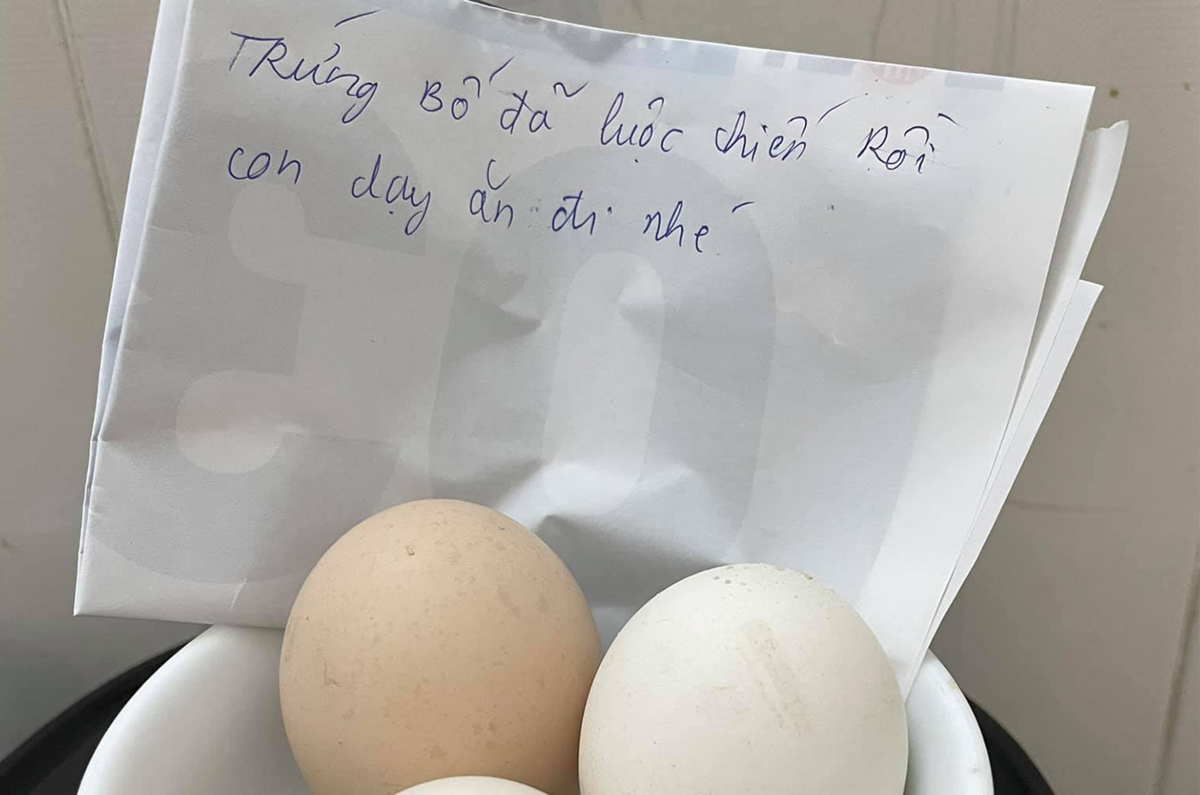 TRứng Bố đã luộc chiến Rồi
con dạy ăn đi nhé